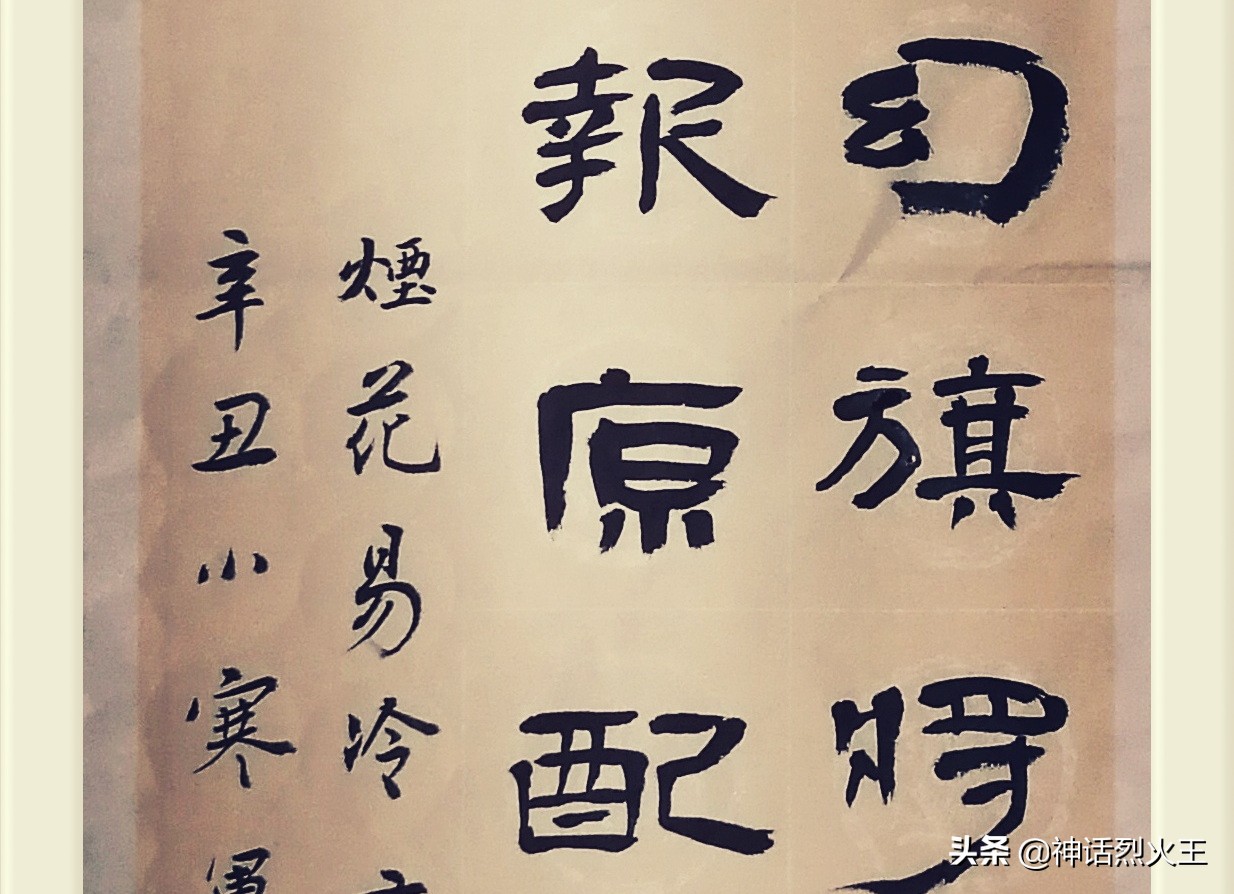 幻旗將
報原配
煙花易冷
辛丑小寒
头条 @神话烈火王